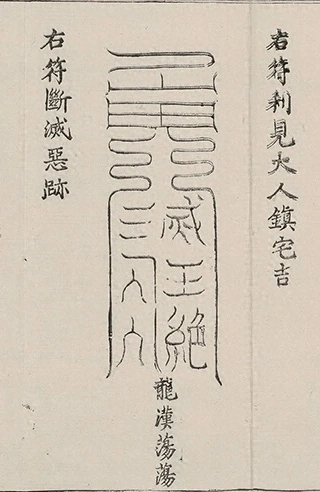 右符利見大人鎮宅吉
滅王絕
三人六
龍漢蕩蕩
右符斷滅惡跡